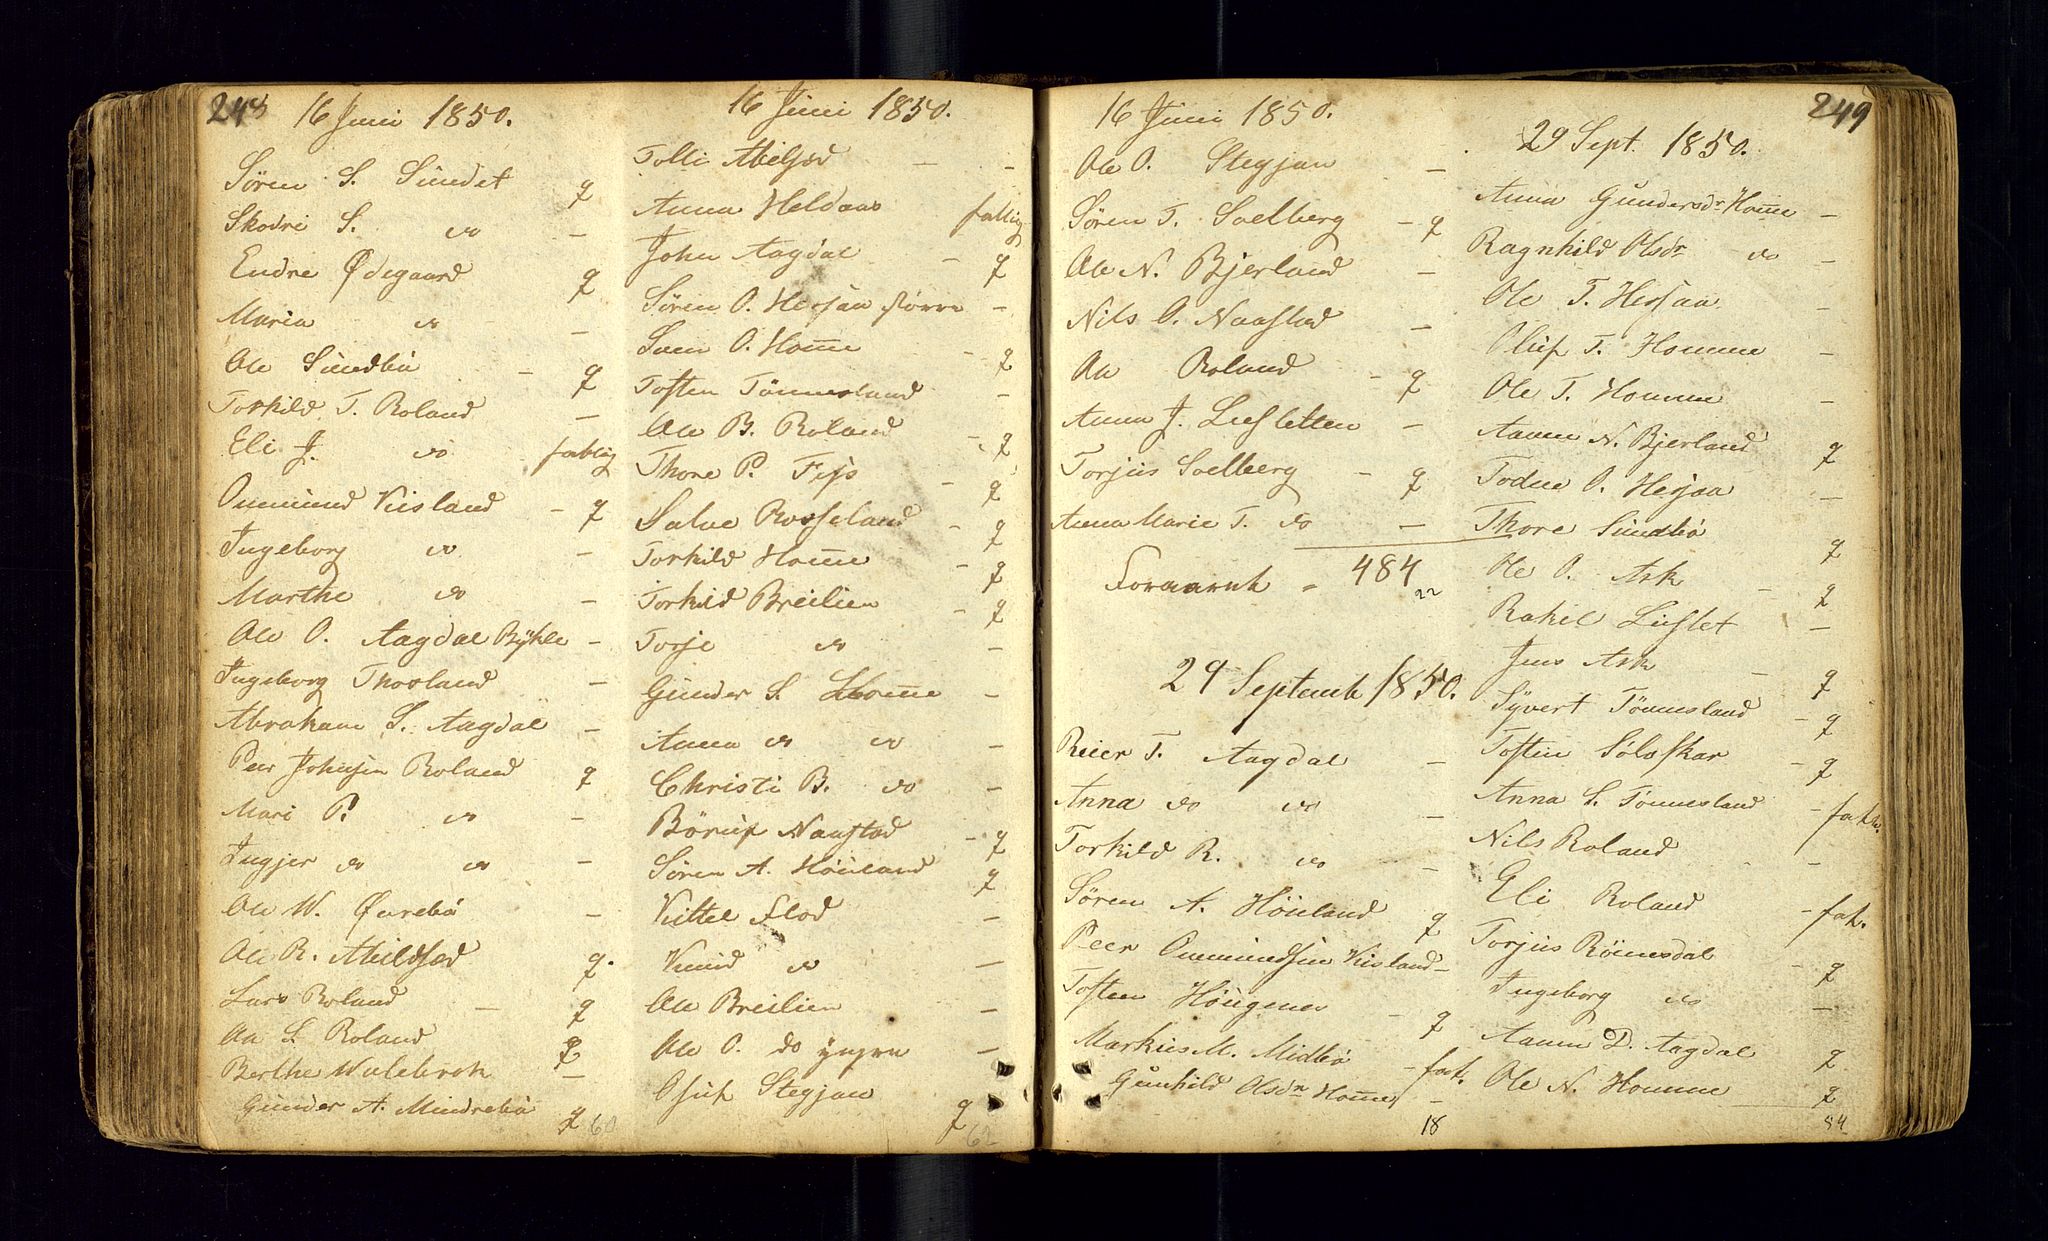 248
16 Juni 1850.
Søren S. Sundet g
Skodri S. do –
Endre Ødegaard g
Maria do –
Ole Sundbø – g
Torkild T. Roland –
Eli J. do fattig
Onnund Visland – g
Ingeborg do –
Marthe do –
Ole O. Aagdal Bykle –
Ingeborg Thorland –
Abraham S. Aagdal –
Peer Johnsen Roland g
Mari P. do –
Ingjer do do –
Ole W. Øvrebø –
Ole R. Abildsød g.
Lars Roland – g
Aa S. Roland g
Berthe Walebrok –
Gunder A. Mindrebø g
60
16 Juni 1850.
Tolli Abelsød – –
Anna Heldaas fattig
John Aagdal – g
Søren O. Hersaa større –
Sven O. Home – g
Tosten Tønnesland –
Ole B. Roland – g
Thore P. Fips – g
Salve Rosseland – g
Torkild Home – g
Torkild Breilien – g
Torje do –
Gunder S. Home –
Anna do do –
Christi B. do –
Børuf Naastad – g
Søren A. Høiland g
Kittel Flod –
Knud do –
Ole Breilien –
Ole O. do yngre –
Osuf Stegjan g
62
16 Juni 1850.
Ole O. Stegjan –
Søren T. Solberg – g
Ole N. Bjerland –
Nils O. Naastad –
Aa Roland – g
Anna J. Lusletten –
Torjus Solberg – g
Anna Marie T. do –
484
22
29 Septemb 1850.
Reier T. Aagdal –
Anna do do –
Torkild R. do –
Søren A. Høiland g
Peer Onnundsen Visland –
Tosten Høugener – g
Markus M. Midbø – fat.
Gunhild Olsdr Home –
18
249
29 Sept. 1850.
Anna Gundersdr Home –
Ragnhild Olsdr do –
Ole T. Hersaa –
Oluf T. Homme –
Ole T. Homme –
Aanen N. Bjerland g
Todne O. Hersaa –
Thore Sundbø g
Ole O. Ask – g
Rakel Luslet –
Jens Ask – g
Syvert Tønnesland – g
Tosten Søloskar – g
Anna S. Tønnesland – fat.
Nils Roland –
Eli Roland – fat.
Torjus Rømesdal – g
Ingeborg do –
Aanen D. Aagdal g
Ole N. Homme g
84